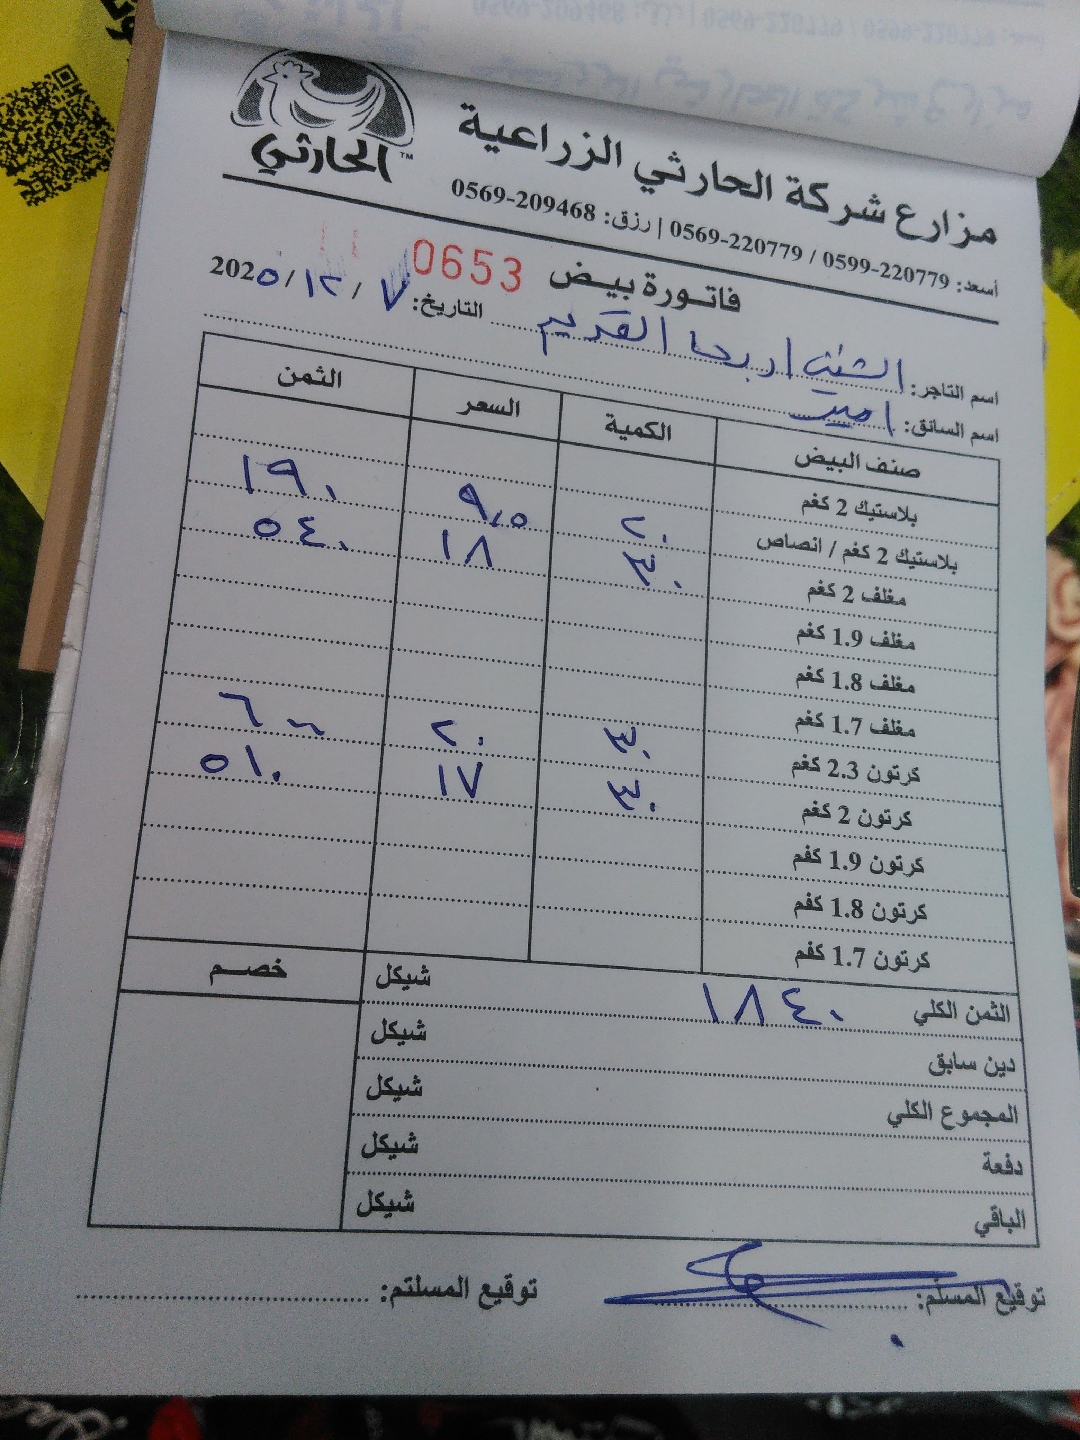 الحارثي TM
مزارع شركة الحارثي الزراعية
أسعد: 0599-220779 / 0569-220779 | رزق: 0569-209468
فاتورة بيض 0653
التاريخ: ٧ / ١٢ / 202٥
اسم التاجر: / اريحا القديم
اسم السائق:
صنف البيض الكمية السعر الثمن
بلاستيك 2 كغم
بلاستيك 2 كغم / انصاص ٢٠ ٩,٥ ١٩٠
مغلف 2 كغم ٣٠ ١٨ ٥٤٠
مغلف 1.9 كغم
مغلف 1.8 كغم
مغلف 1.7 كغم
كرتون 2.3 كغم ٣٠ ٢٠ ٦٠٠
كرتون 2 كغم ٣٠ ١٧ ٥١٠
كرتون 1.9 كغم
كرتون 1.8 كغم
كرتون 1.7 كغم
الثمن الكلي ١٨٤٠ شيكل خصم
دين سابق شيكل
المجموع الكلي شيكل
دفعة شيكل
الباقي شيكل
توقيع المسلّم: توقيع المستلم: